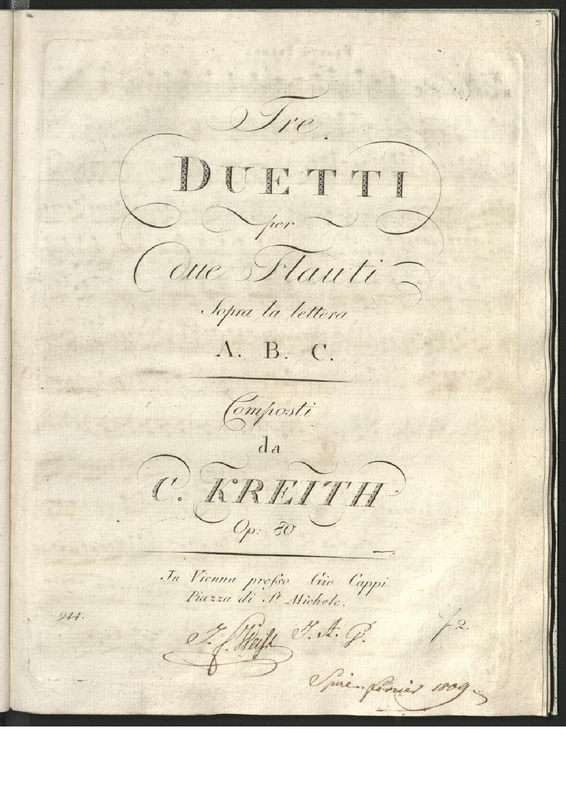 Tre
DUETTI
per
due Flauti
Sopra la lettera
A. B. C.
Composti
da
C. KREITH
Op: 80
In Vienna presso Gio Cappi
Piazza di St Michele.
944.
f 2.
1809